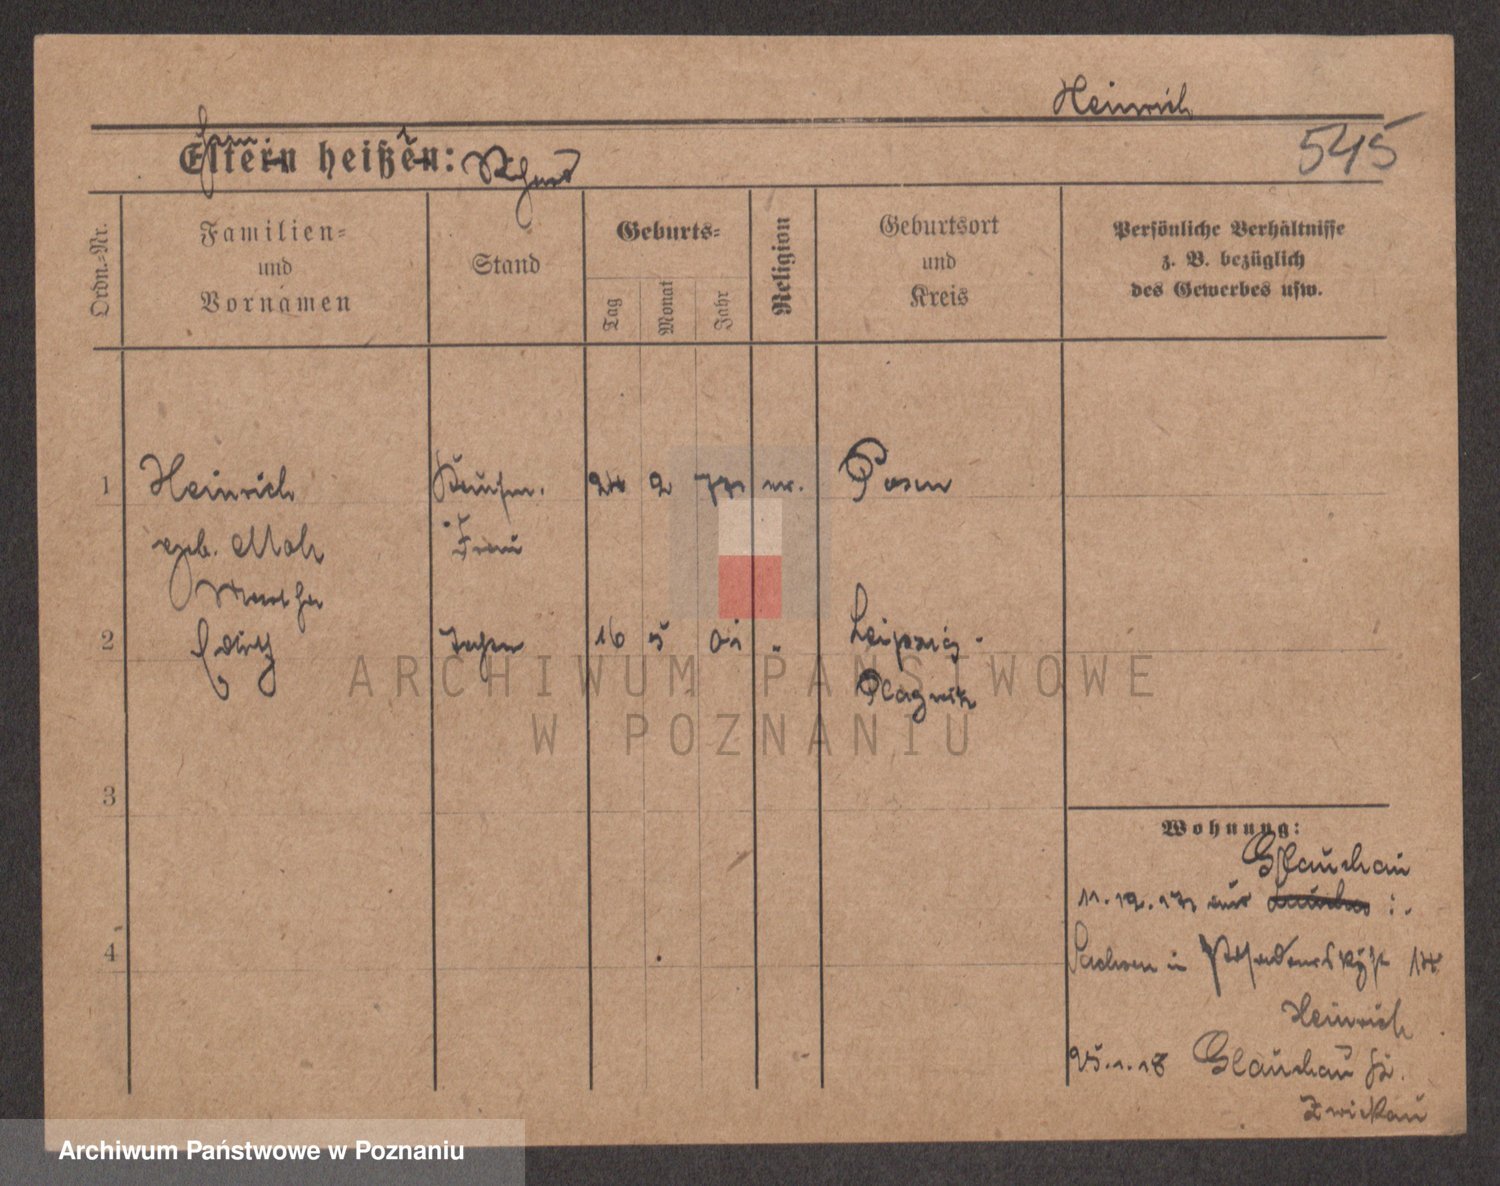 Heinrich
545
Eltern heißen: Richard
Ordn.-Nr.
Familien-
und
Vornamen
Stand
Geburts-
Tag
Monat
Jahr
Religion
Geburtsort
und
Kreis
Persönliche Verhältnisse
z. B. bezüglich
des Gewerbes usw.
1 Heinrich Kaufm. 24 2 Posen
geb. Frau
Martha
2 16 5 01 " Leipzig-
Plagwitz
3
4
Wohnung:
Glauchau
11.12.17 aus i.
Sachsen in 14
Heinrich
25.1.18 Glauchau
Zwickau
ARCHIWUM PAŃSTWOWE
W POZNANIU
Archiwum Państwowe w Poznaniu